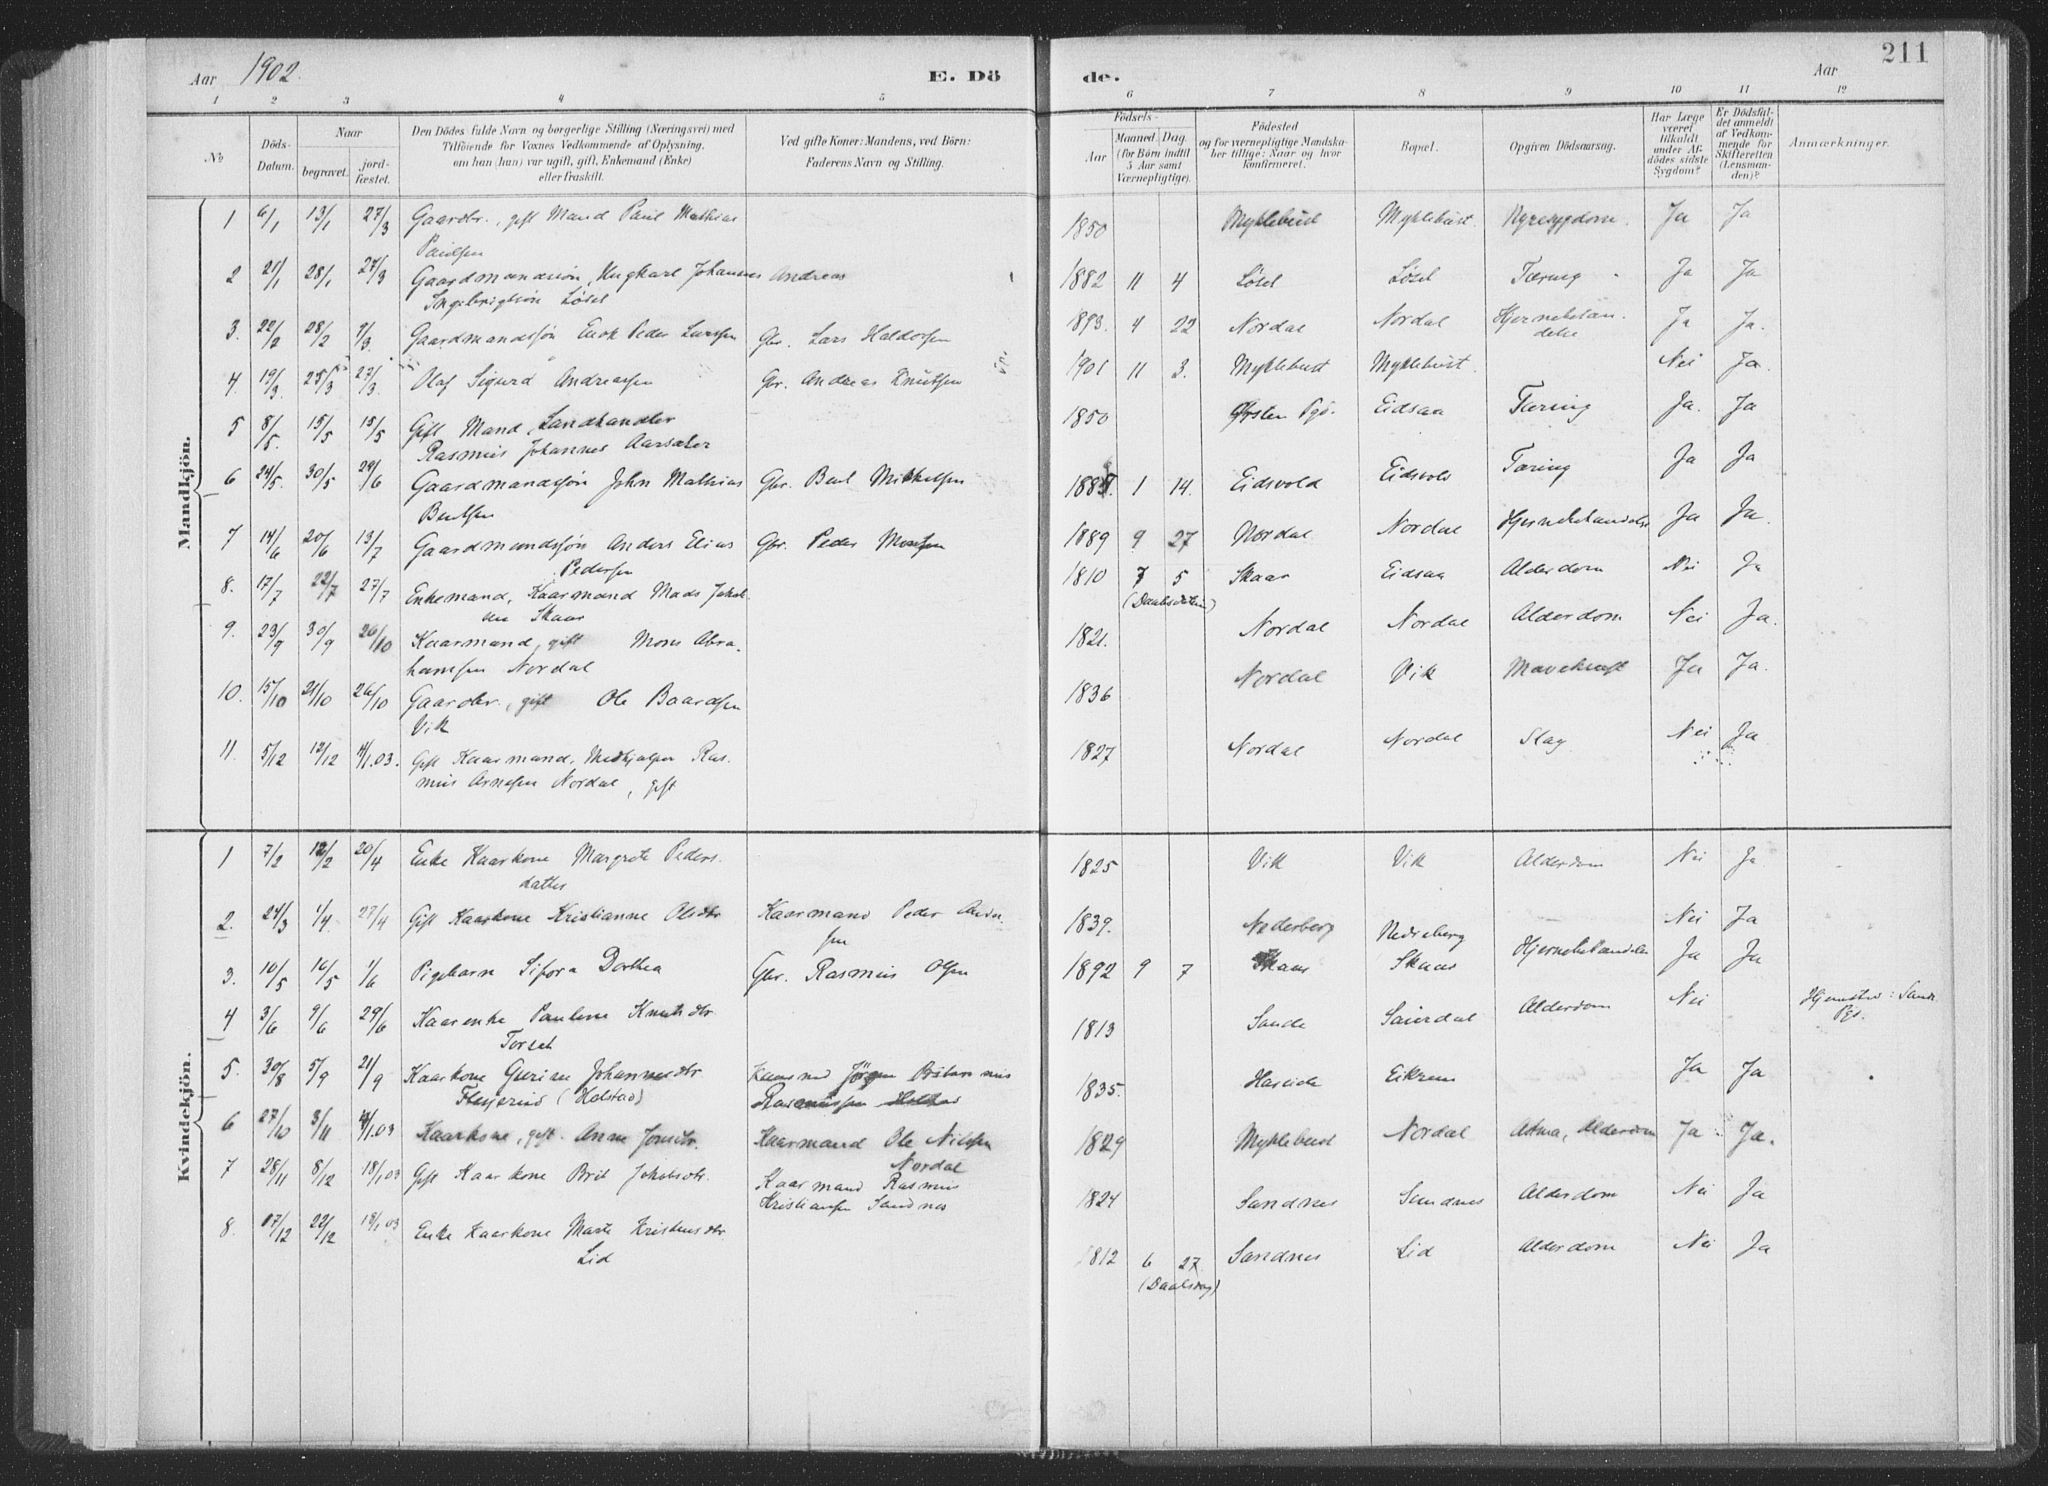 211
Aar 1902. E. Dö de. Aar
1 2 3 4 5 6 7 8 9 10 11 12
No
Döds-Datum.
Naar begravet. jord-fæstet.
Den Dödes fulde Navn og borgerlige Stilling (Næringsvei) med Tilföiende for Voxnes Vedkommende af Oplysning, om han (hun) var ugift, gift, Enkemand (Enke) eller fraskilt.
Ved gifte Koner: Mandens, ved Börn: Faderens Navn og Stilling.
Födsels- Aar Maaned Dag. (for Börn indtil 5 Aar samt Værnepligtige).
Födested og for værnepligtige Mandskaber tillige: Naar og hvor konfirmeret.
Bopæl.
Opgiven Dödsaarsag.
Har Læge været tilkaldt under Afdödes sidste Sygdom?
Er Dödsfaldet anmeldt af Vedkommende for Skifteretten (Lensmanden)?
Anmærkninger.
Mandkjön.
1 6/1 13/1 27/3 Gaardbr., gift Mand Paul Mathias 1850 Myklebust Myklebust. Nyresygdom. Ja Ja
Paulsen
2 21/1 28/1 27/3 Gaardmandssøn, Ungkarl Johannes Andreas 1882 11 4 Løset Løset Tæring Ja Ja
Ingebrigtsøn Løset
3. 22/2 28/2 9/3. Gaardmandssøn Enok Peder Larssen Gbr. Lars Haldorsen 1893. 4 22 Nordal Nordal Hjernebetæn- Ja Ja.
delse
4. 19/3. 25/3 27/3. Olaf Sigurd Andreassen Gbr. Andreas Knutsen 1901 11 3. Myklebust Myklebust. Nei Ja.
5 8/5. 15/5 15/5 Gift Mand, Landhandler 1850 Ørsten Pgd. Eidsaa Tæring Ja. Ja
Rasmus Johannes Aarsæter
6 24/5. 30/5 29/6 Gaardmandssøn John Mathias Gbr. Bent Mikkelsen 188 1 14. Eidsvold Eidsvold Tæring Ja Ja
Bentsen
7 14/6 20/6 13/7 Gaardmandssøn Anders Elias Gbr. Peder 1889 9 27 Nordal Nordal Hjernebetændelse Ja Ja.
Pedersen
8. 17/7 22/7 27/7 Enkemand, Kaarmand Mads Jakob- 1810 7 5 Skaar Eidsaa Alderdom Nei Ja
sen Skaar (Daabsdatum)
9. 23/9 30/9 26/10 Kaarmand, gift Mons Abra- 1821. Nordal Nordal Alderdom Nei Ja.
hamsen Nordal
10. 15/10 21/10 26/10 Gaardbr., gift Ole Baardsen 1836 Nordal Vik Mavekræft Ja Ja.
Vik
11. 5/12 12/12 4/1.03. Gift Kaarmand, Medhjælper Ras- 1827 Nordal Nordal Slag Nei Ja
mus Arnesen Nordal, gift
Kvindekjön.
1 7/2 12/2 20/4 Enke Kaarkone Margrete Peders- 1825 Vik Vik Alderdom Nei Ja
datter
2. 24/3 1/4. 27/4 Gift Kaarkone Kristianne Olsdtr Kaarmand Peder 1839. Nederberg Nedreberg Nei Ja
sen
3. 10/5 16/5 1/6 Pigebarn Sifora Dorthea Gbr. Rasmus Olsen 1892 9 7 Skaar Skaar Hjernebetændelse Ja Ja
4 3/6 9/6 29/6 Kaarenke Pauline Knutsdtr 1813 Sande Saurdal Alderdom Nei Hjemsted: Sande
Torset Pgd.
5. 30/8 5/9 21/9 Kaarkone Gurine Johannesdtr Kaarmd Jørgen 1835. Hareide Eikrem Ja Ja
(Halstad) Rasmussen
6 27/10 3/11 4/1.03 Kaarkone, gift. Anne Jonsdtr. Kaarmand Ole Nilssen 1829 Myklebust Nordal Astma, Alderdom Ja Ja.
Nordal
7 28/11 8/12 18/1 03 Gift Kaarkone Brit Jakobsdtr. Kaarmand Rasmus 1824 Sandnes Sandnes Alderdom Nei Ja
Kristiansen Sandnes
8. 17/12 22/12 18/1 03 Enke Kaarkone Marte Kristensdtr 1812 6 27 Sandnes Lid Alderdom Nei Ja
Lid (Daabsdag)